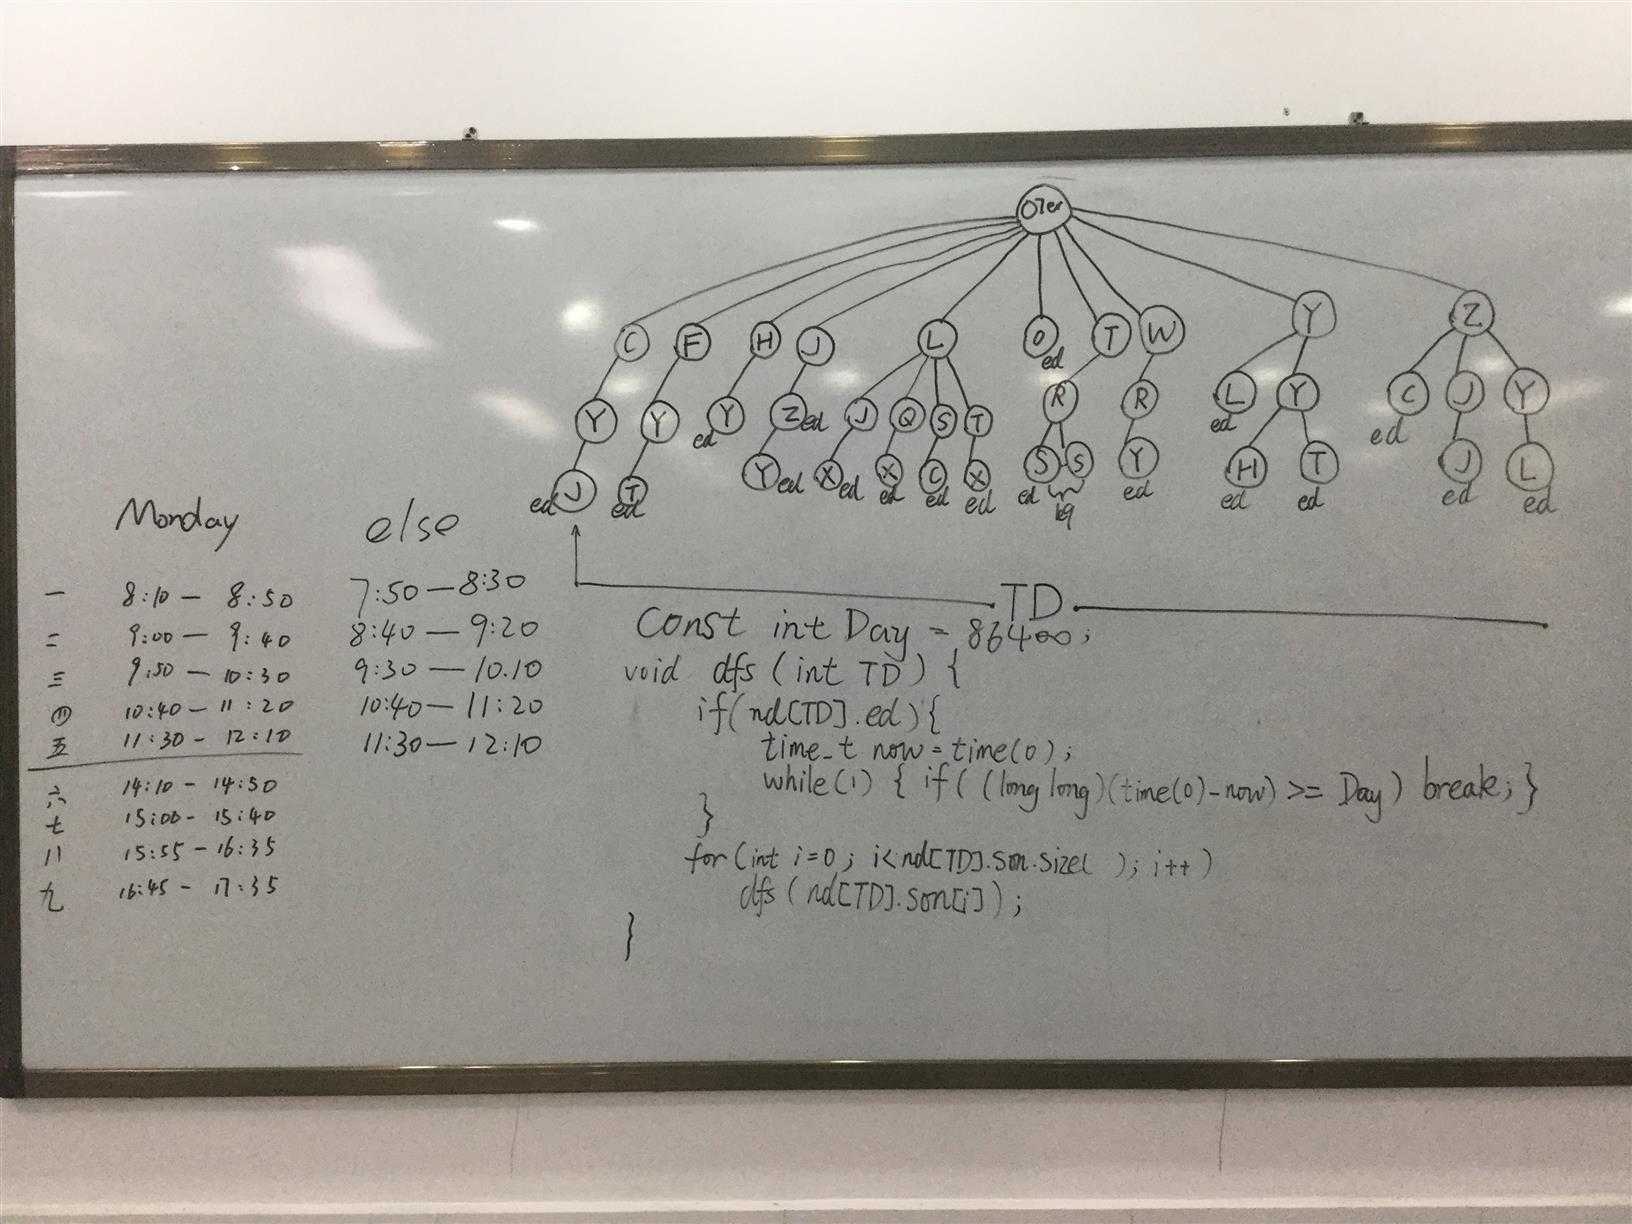 OIer
C F H J L O T W Y Z
ed
Y Y Y Z J Q S T R R L Y C J Y
ed ed ed ed
J T Y X X C X S S Y H T J L
ed ed ed ed ed ed ed ed ed ed ed ed ed
Monday else
一 8:10 — 8:50 7:50 — 8:30
二 9:00 — 9:40 8:40 — 9:20
三 9:50 — 10:30 9:30 — 10.10
四 10:40 — 11:20 10:40 — 11:20
五 11:30 - 12:10 11:30 — 12:10
六 14:10 - 14:50
七 15:00 - 15:40
八 15:55 - 16:35
九 16:45 - 17:35
TD
Const int Day = 86400;
void dfs (int TD) {
if(nd[TD].ed){
time_t now=time(0);
while(1) { if( (long long)(time(0)-now) >= Day) break; }
}
for(int i=0; i<nd[TD].son.size( ); i++)
dfs (nd[TD].son[i]);
}